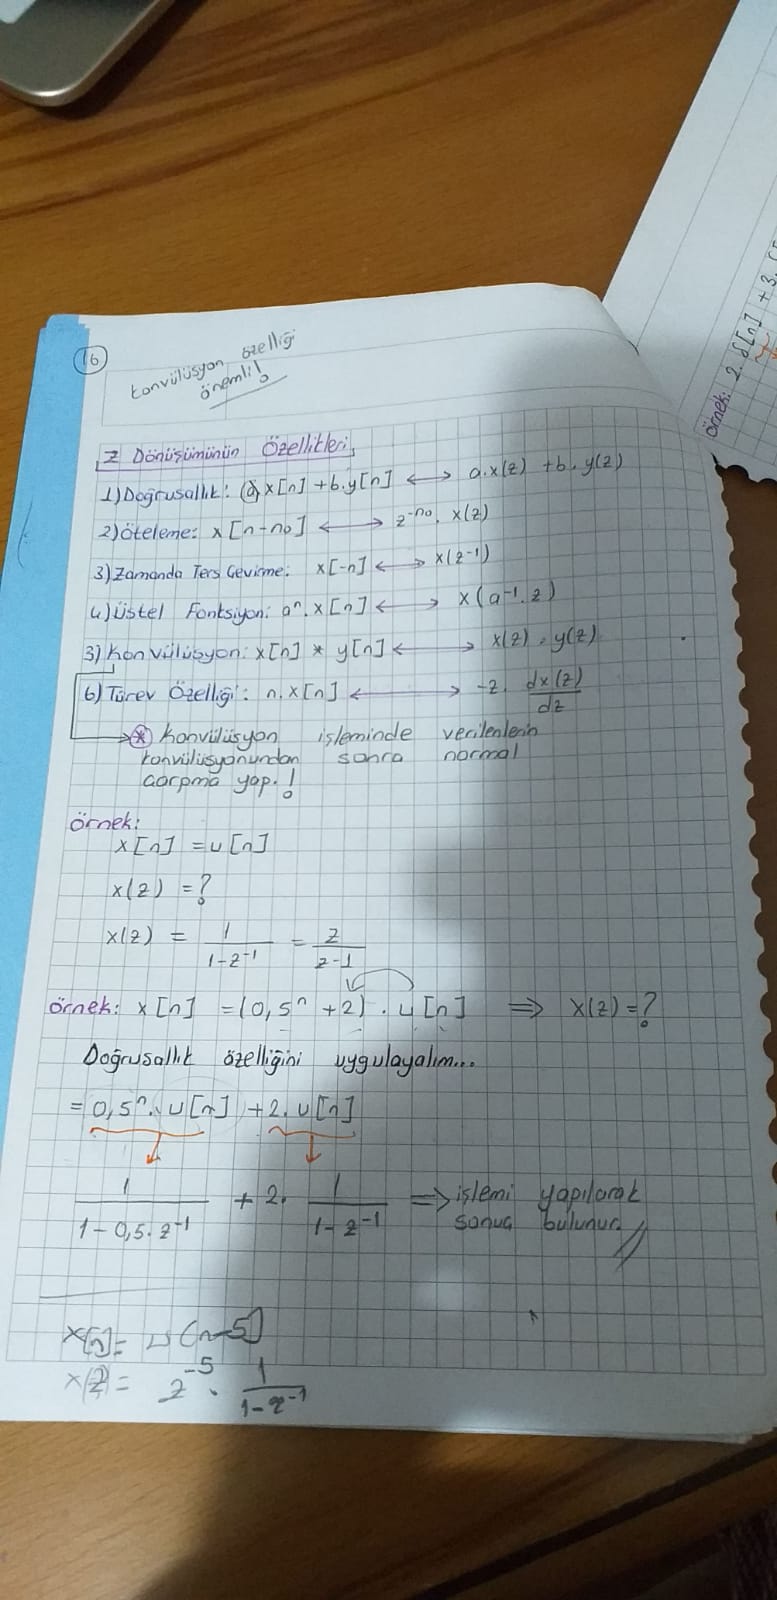 16
Konvülüsyon özelliği
önemli!
Z Dönüşümünün Özellikleri
1) Doğrusallık: a.x[n] + b.y[n] ⟷ a.x(z) + b.y(z)
2) Öteleme: x[n-n0] ⟷ z^-n0 . x(z)
3) Zamanda Ters Çevirme: x[-n] ⟷ x(z^-1)
4) Üstel Fonksiyon: a^n. x[n] ⟷ x(a^-1. z)
3) Konvülüsyon: x[n] * y[n] ⟷ x(z) . y(z)
6) Türev Özelliği: n. x[n] ⟷ -z. dx(z)/dz
→ * Konvülüsyon işleminde verilenlerin
konvülüsyonundan sonra normal
çarpma yap.!
örnek:
x[n] = u[n]
x(z) = ?
x(z) = 1/(1-z^-1) = z/(z-1)
örnek: x[n] = (0,5^n + 2) . u[n] ⇒ x(z) = ?
Doğrusallık özelliğini uygulayalım...
= 0,5^n. u[n] + 2. u[n]
1/(1-0,5.z^-1) + 2. 1/(1-z^-1) ⇒ işlemi yapılarak
sonuç bulunur.
x[n] = u[n-5]
x(z) = z^-5 . 1/(1-z^-1)
örnek: 2. δ[n] + 3.